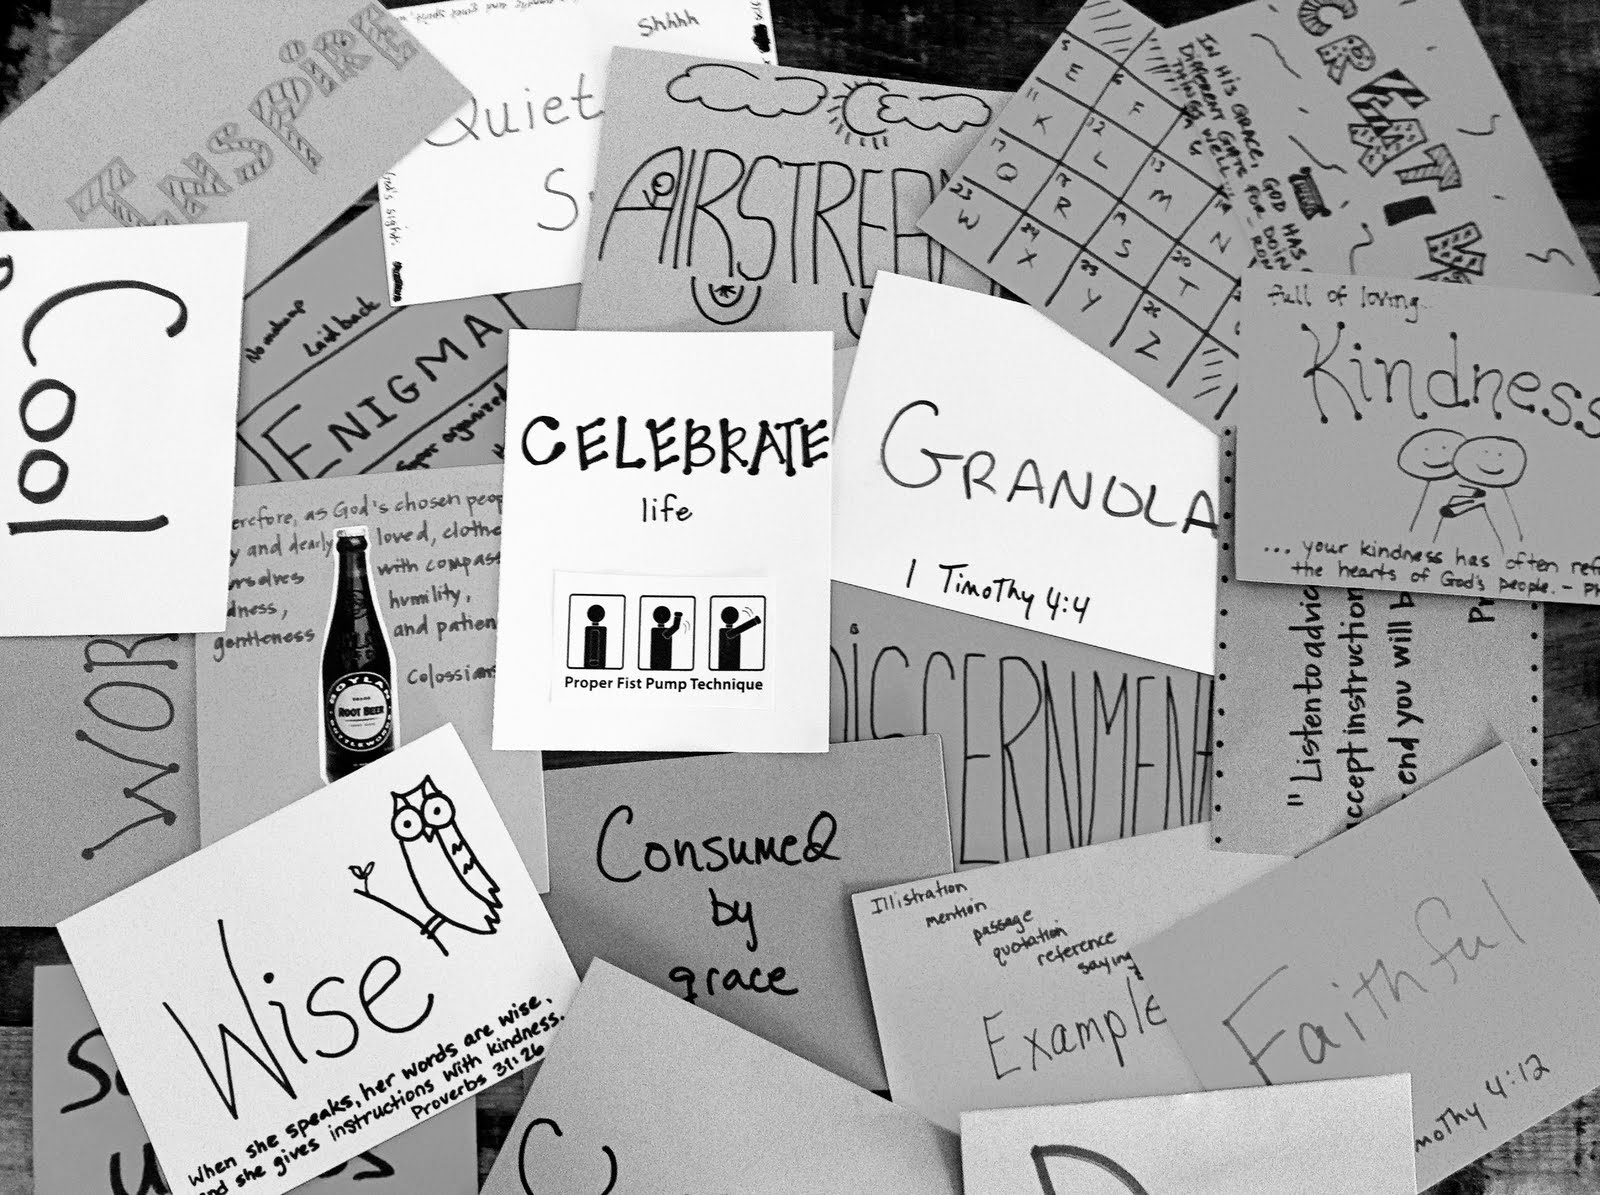 INSPIRE
Shhhh
Quiet
God's sight.
AIRSTREAM
5 E
6 F
11 K
12 L
13 M
N
17 Q
18 R
19 S
20 T
23 W
24 X
25 Y
26 Z
IN HIS GRACE, GOD HAS
DIFFERENT GIFTS FOR DOING
THINGS WELL
CREATIV
Cool
No makeup
Laid back
ENIGMA
Super organized
CELEBRATE
life
Proper Fist Pump Technique
GRANOLA
1 Timothy 4:4
full of loving..
Kindness
... your kindness has often
the hearts of God's people. -
erefore, as God's chosen
y and dearly loved, clothe
urselves with
dness, humility,
gentleness and
Colossians
BOYLAN
ROOT BEER
BOTTLEWORKS
WOR
DISCERNMENT
"Listen to advic
accept instruction
end you will b
Pr
Wise
When she speaks, her words are wise,
and she gives instructions with kindness.
Proverbs 31:26
Consumed
by
grace
Illistration
mention
passage
quotation
reference
saying
Example
Faithful
mothy 4:12
C